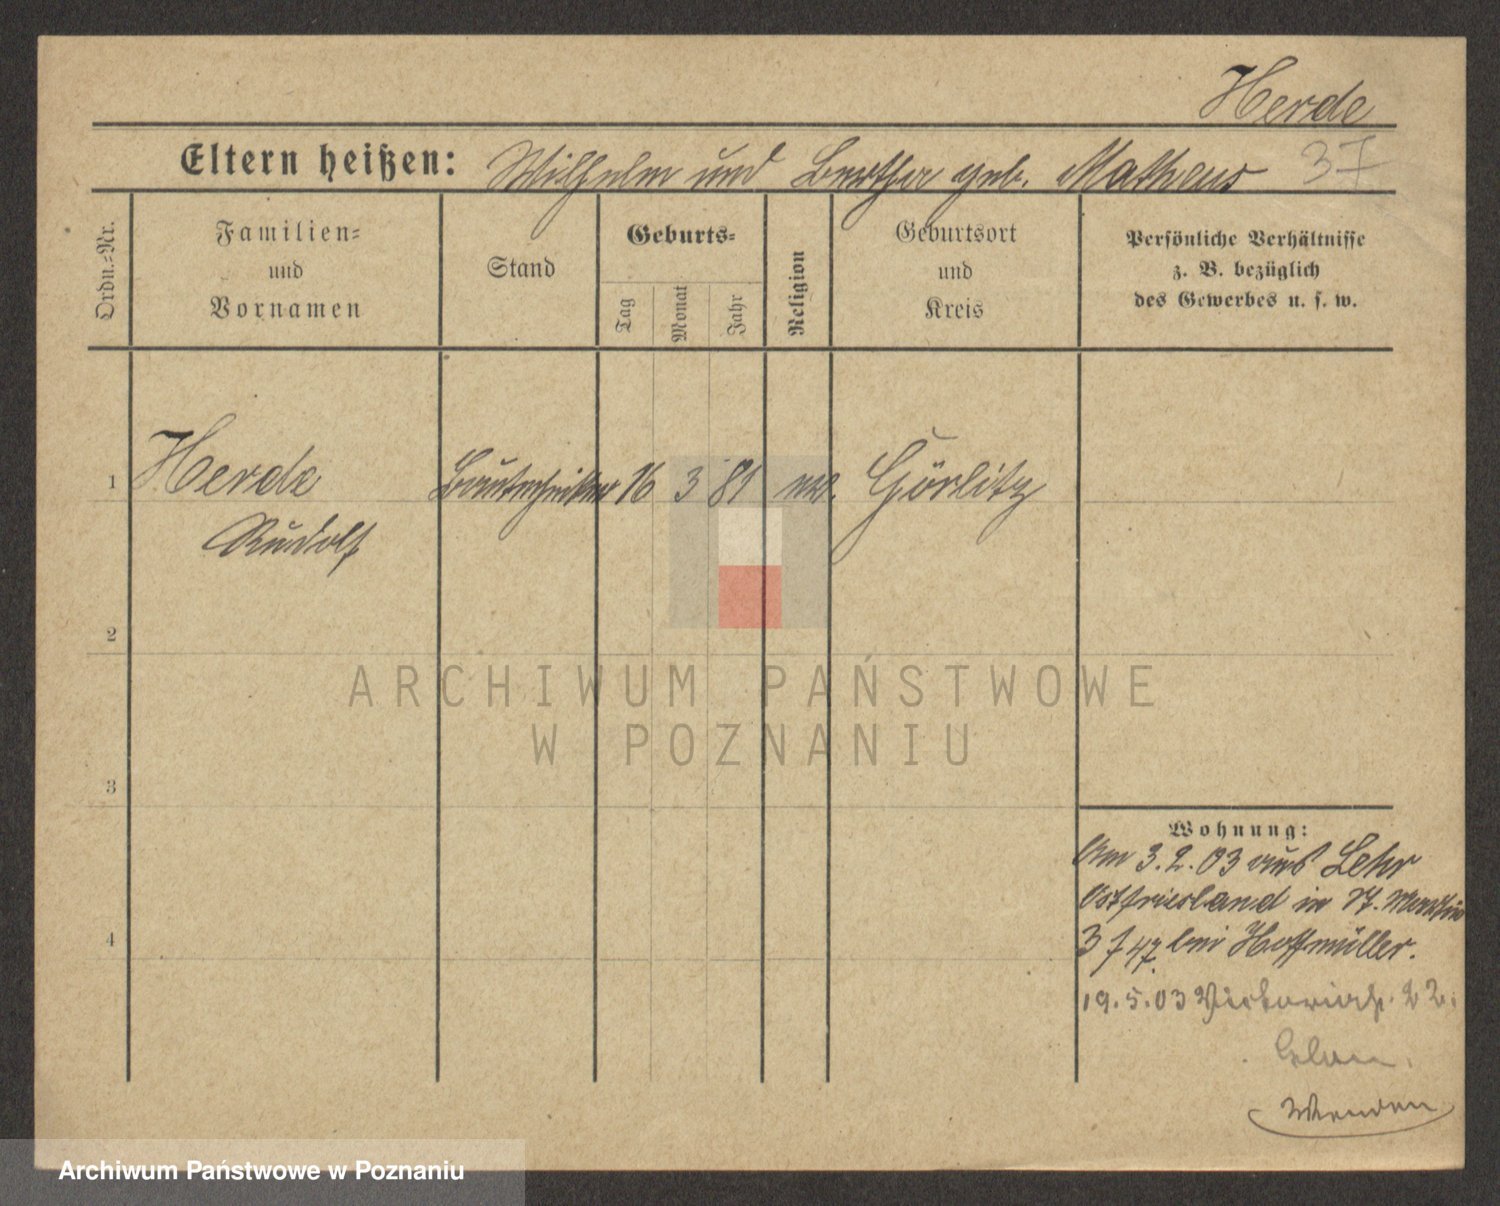 Herde
Eltern heißen: Wilhelm und Bertha geb. Matheus 37
Ordn.-Nr.
Familien-
und
Vornamen
Stand
Geburts-
Tag
Monat
Jahr
Religion
Geburtsort
und
Kreis
Persönliche Verhältnisse
z. B. bezüglich
des Gewerbes u. s. w.
1 Herde Bautechniker 16 3 81 ev. Görlitz
Rudolf
2
ARCHIWUM PAŃSTWOWE
W POZNANIU
3
Wohnung:
Am 3.2.03 aus Lehr
Ostfriesland in St. Martin
bei Hoffmüller.
19.5.03 Victoriastr. 22.
4
Wenden
Archiwum Państwowe w Poznaniu